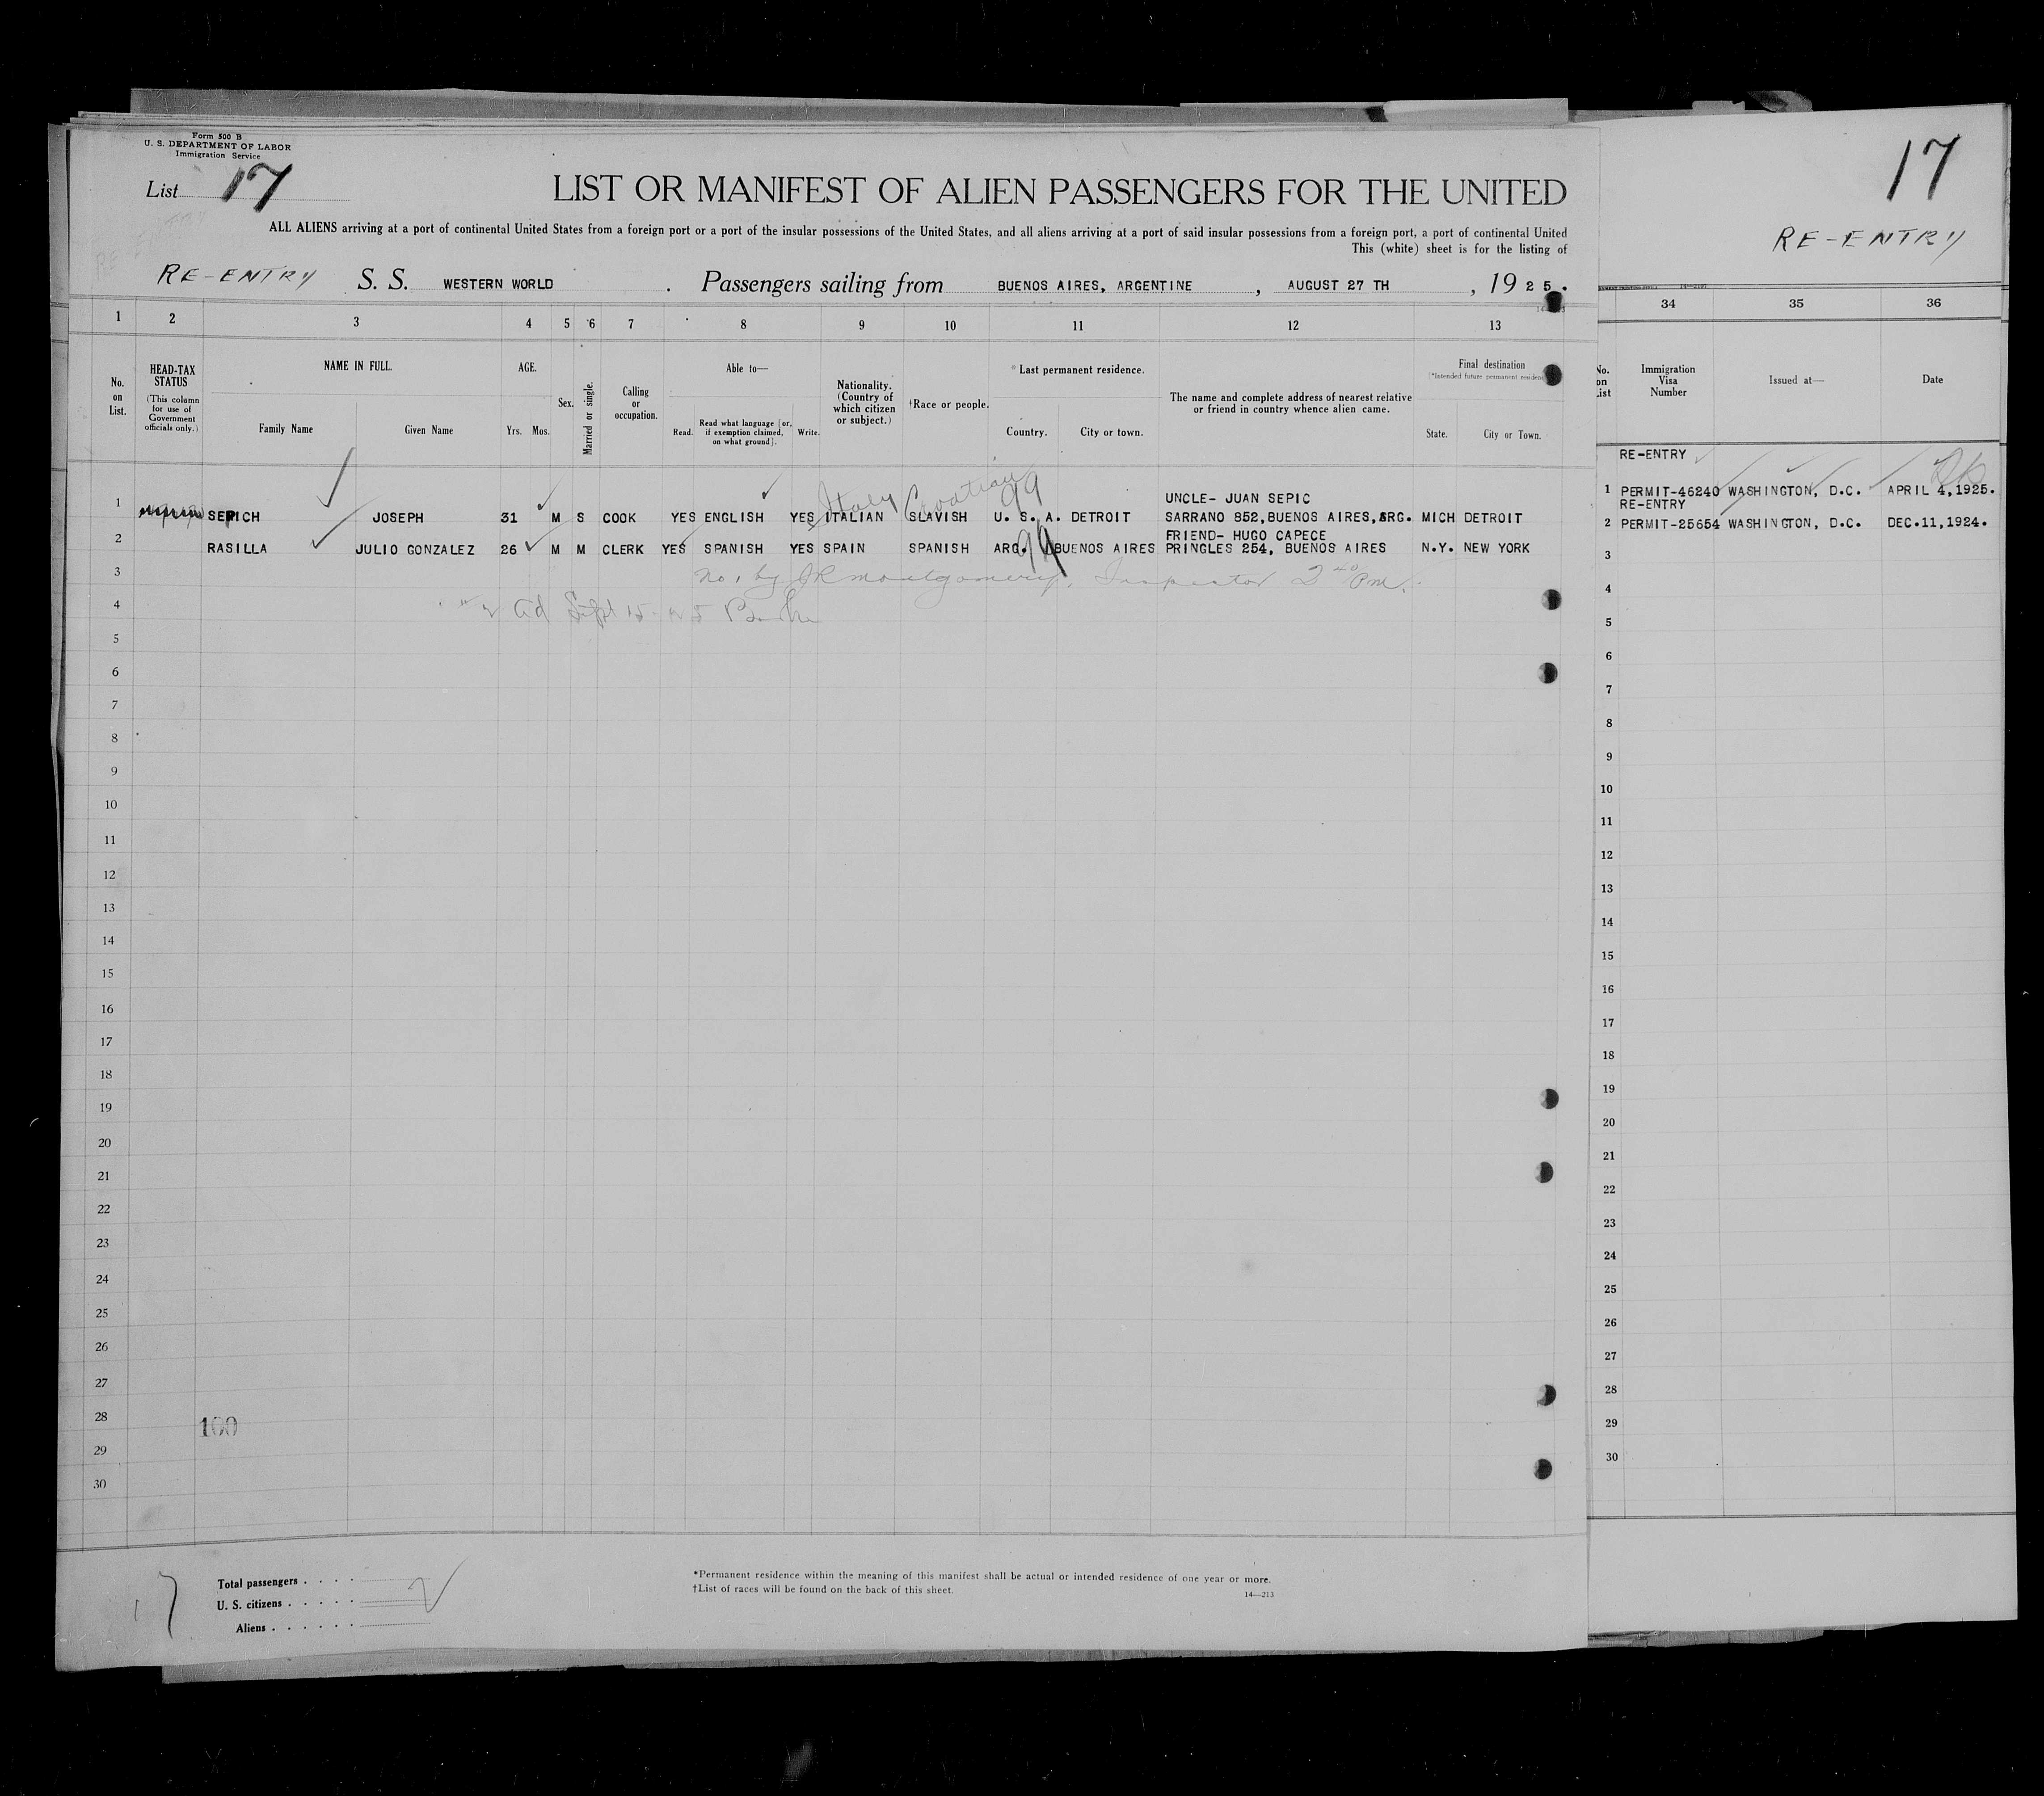 Form 500 B
U. S. DEPARTMENT OF LABOR
Immigration Service
List 17
LIST OR MANIFEST OF ALIEN PASSENGERS FOR THE UNITED
ALL ALIENS arriving at a port of continental United States from a foreign port or a port of the insular possessions of the United States, and all aliens arriving at a port of said insular possessions from a foreign port, a port of continental United
This (white) sheet is for the listing of
RE-ENTRY S. S. WESTERN WORLD . Passengers sailing from BUENOS AIRES, ARGENTINE , AUGUST 27 TH , 1925.
17
RE-ENTRY
1 2 3 4 5 6 7 8 9 10 11 12 13 34 35 36
No. on List.
HEAD-TAX STATUS (This column for use of Government officials only.)
NAME IN FULL. Family Name Given Name
AGE. Yrs. Mos.
Sex.
Married or single.
Calling or occupation.
Able to— Read. Read what language [or, if exemption claimed, on what ground]. Write.
Nationality. (Country of which citizen or subject.)
†Race or people.
*Last permanent residence. Country. City or town.
The name and complete address of nearest relative or friend in country whence alien came.
Final destination (*Intended future permanent residence) State. City or Town.
No. on List
Immigration Visa Number
Issued at—
Date
Italy Croatian 99
UNCLE- JUAN SEPIC
1 SEPICH JOSEPH 31 M S COOK YES ENGLISH YES ITALIAN SLAVISH U. S. A. DETROIT SARRANO 852, BUENOS AIRES, ARG. MICH DETROIT
FRIEND- HUGO CAPECE
2 RASILLA JULIO GONZALEZ 26 M M CLERK YES SPANISH YES SPAIN SPANISH ARG. BUENOS AIRES PRINGLES 254, BUENOS AIRES N.Y. NEW YORK
RE-ENTRY
1 PERMIT-46240 WASHINGTON, D.C. APRIL 4,1925.
RE-ENTRY
2 PERMIT-25654 WASHINGTON, D.C. DEC.11,1924.
99
No. 1 by JR Montgomery, Inspector 2 40 Pm.
" 2 ad Sept 15-25
3
4
5
6
7
8
9
10
11
12
13
14
15
16
17
18
19
20
21
22
23
24
25
26
27
28
29
30
3
4
5
6
7
8
9
10
11
12
13
14
15
16
17
18
19
20
21
22
23
24
25
26
27
28
29
30
100
17
Total passengers . . . .
U. S. citizens . . . . . 2
Aliens . . . . . .
*Permanent residence within the meaning of this manifest shall be actual or intended residence of one year or more.
†List of races will be found on the back of this sheet.
14—213